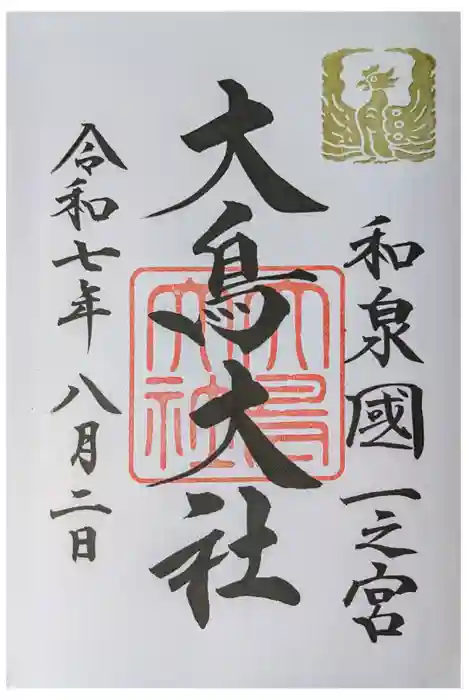 和泉國一之宮
大鳥大社
大鳥大社
令和七年八月二日